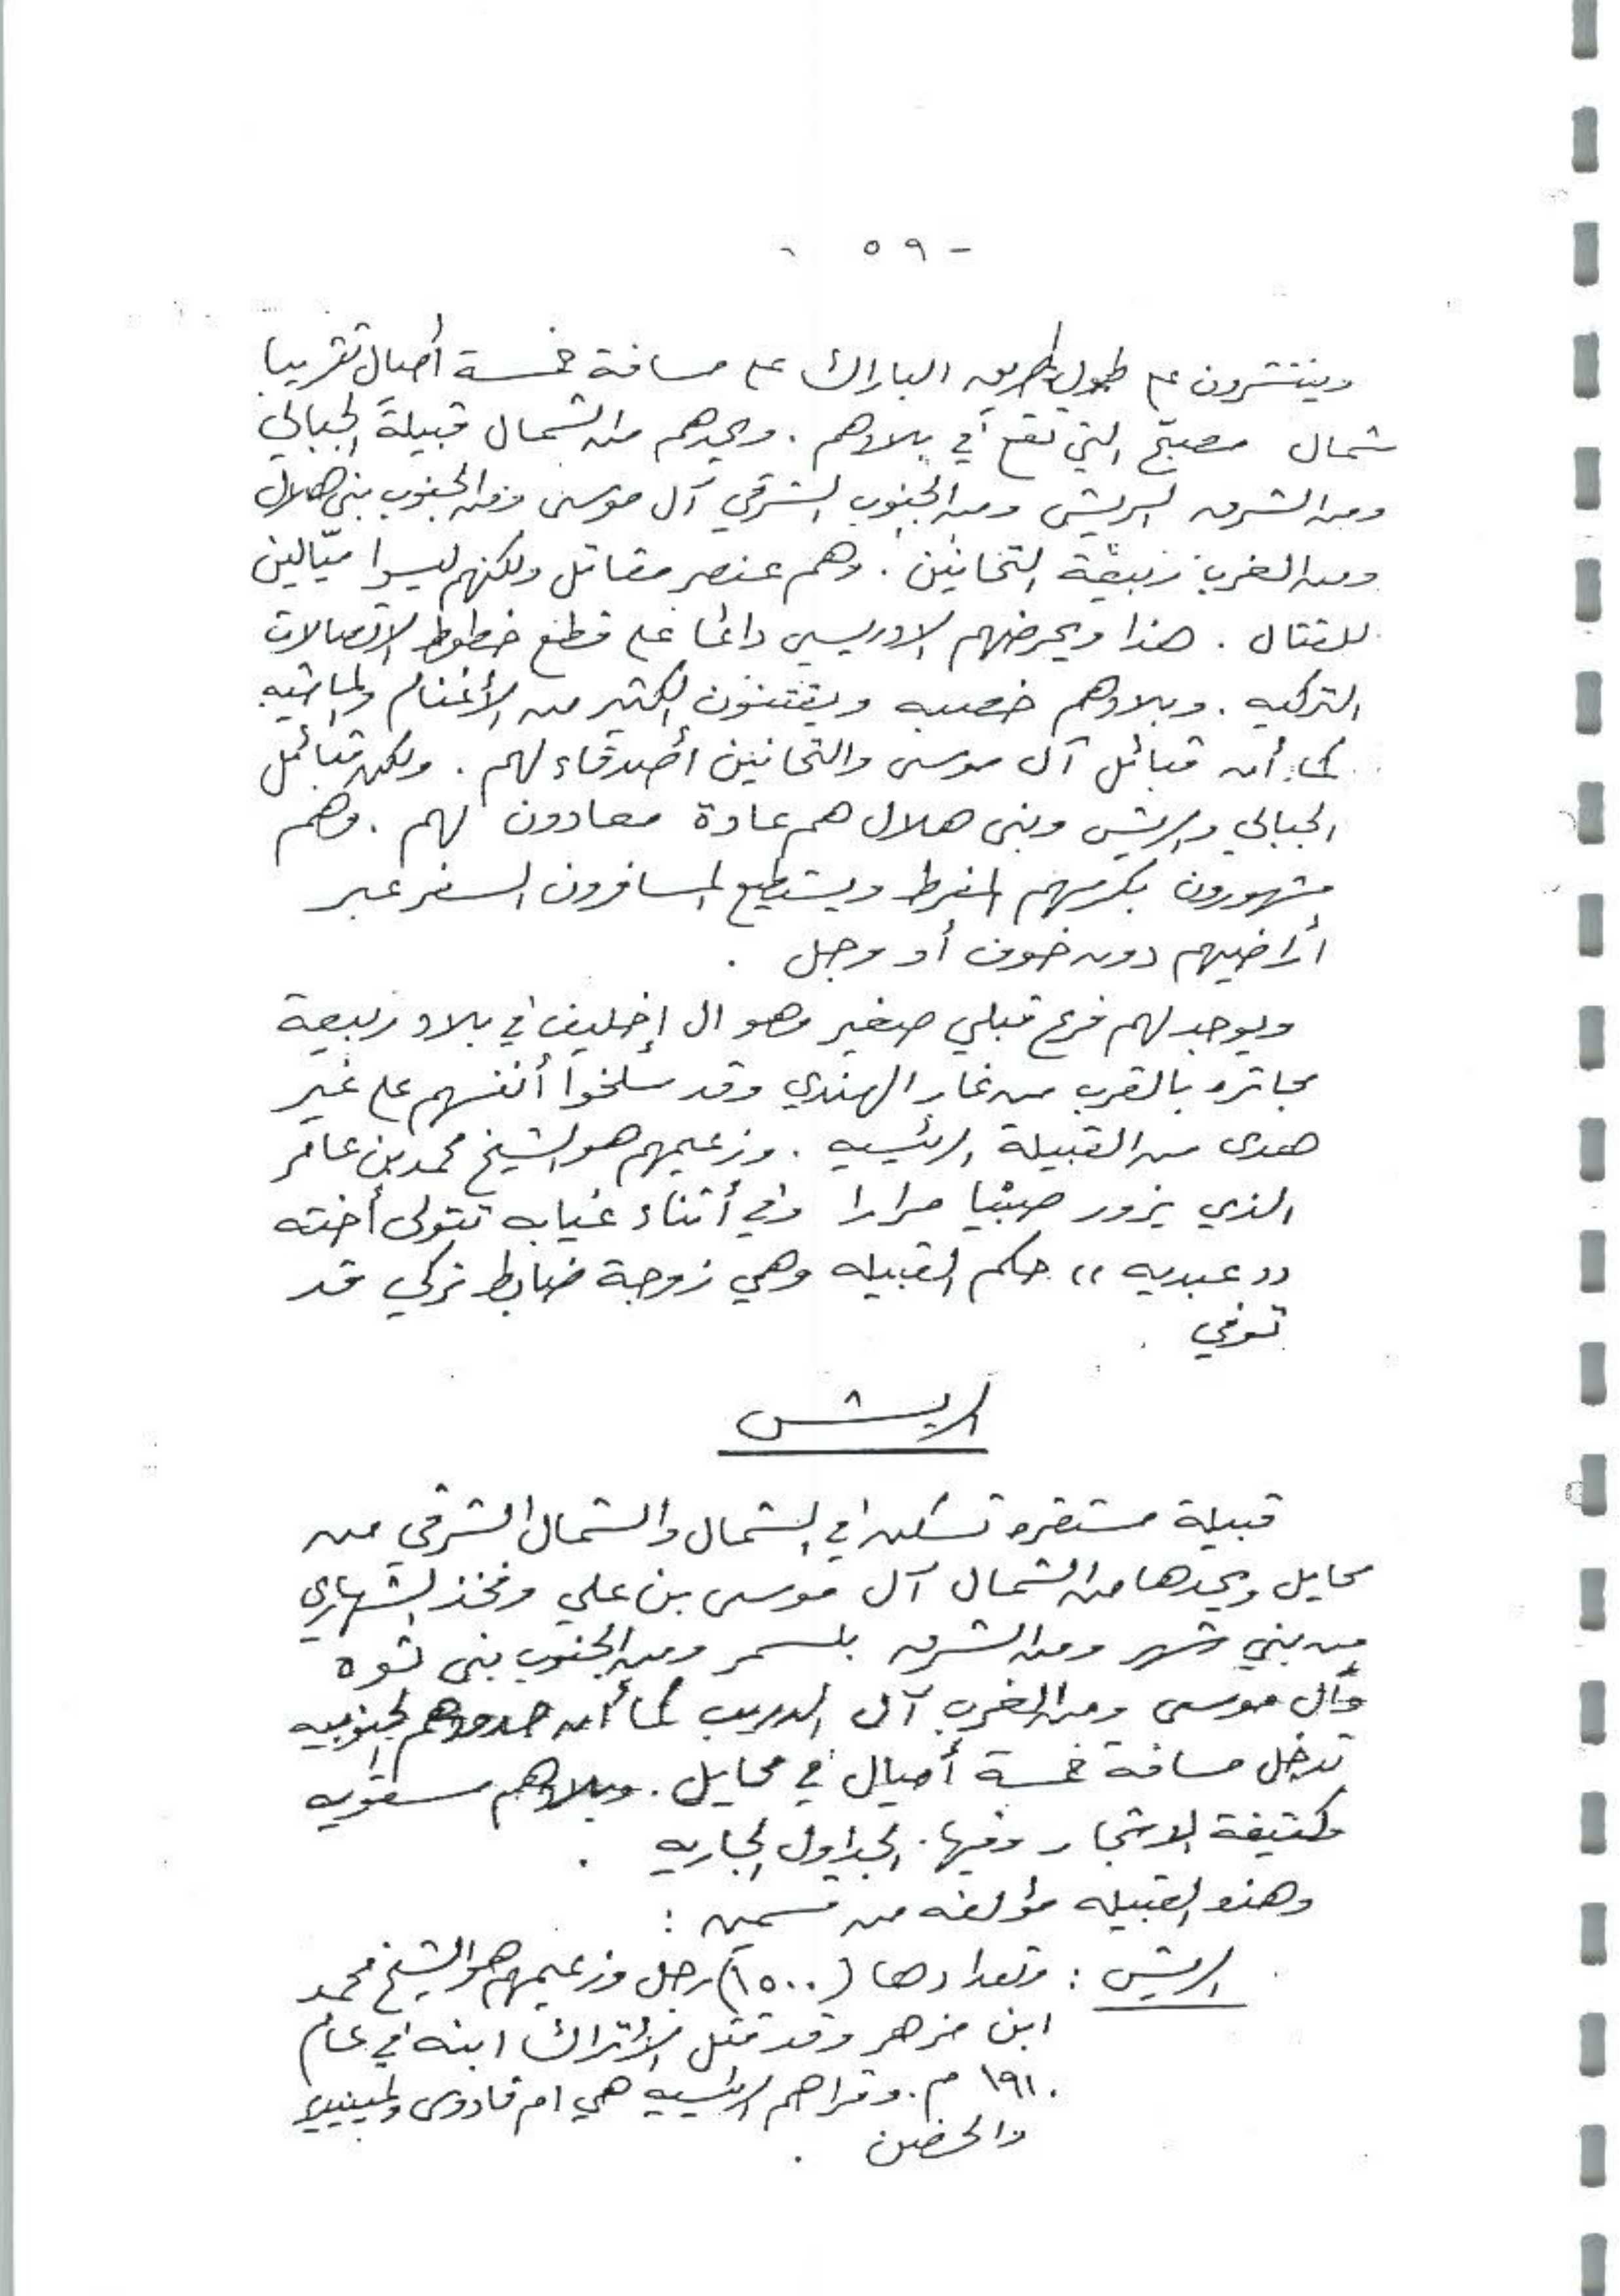 - ٥٩
وينتشرون على طول طريق البارك على مسافة خمسة أميال تقريبا
شمال مصبح التي تقع في بلادهم . ويحدهم من الشمال قبيلة الجبالي
ومن الشرق الريش ومن الجنوب الشرقي آل موسى ومن الجنوب بني هلال
ومن الغرب ربيعة التحانين . وهم عنصر مقاتل ولكنهم ليسوا ميّالين
للقتال . هذا ويحرضهم الادريسي دائما على قطع خطوط الاتصالات
التركيه . وبلادهم خصبه ويقتنون الكثير من الأغنام والماشيه
كما أن قبائل آل موسى والتحانين أصدقاء لهم . ولكن قبائل
الجبالي والريش وبني هلال هم عادة معادون لهم . وهم
مشهورون بكرمهم المفرط ويستطيع المسافرون السفر عبر
أراضيهم دون خوف أو وجل .
ويوجد لهم فرع قبلي صغير وهو ال إخليف في بلاد ربيعة
مجاتره بالقرب من غار الهندي وقد سلخوا أنفسهم على غير
هدى من القبيلة الرئيسيه . وزعيمهم هو الشيخ محمد بن عامر
الذي يزور صبيا مرارا وفي أثناء غيابه تتولى أخته
" عبديه " حكم القبيله وهي زوجة ضابط تركي قد
توفي
الريش
قبيلة مستقره تسكن في الشمال والشمال الشرقي من
محايل ويحدها من الشمال آل موسى بن علي وفخذ الشهاري
من بني شهر ومن الشرق بلسمر ومن الجنوب بني ثوه
وآل موسى ومن الغرب آل الدريب كما أن حدودهم الجنوبيه
تدخل مسافة خمسة أميال في محايل . وبلادهم مستويه
وكثيفة الاشجار وفيها الجداول الجاريه .
وهذه القبيله مؤلفه من قسمين :
الريش : وتعدادها (١٥٠٠) رجل وزعيمهم هو الشيخ محمد
ابن مزهر وقد قتل الأتراك ابنه في عام
١٩١٠ م . وقراهم الرئيسيه هي ام قادوى
والحضن .